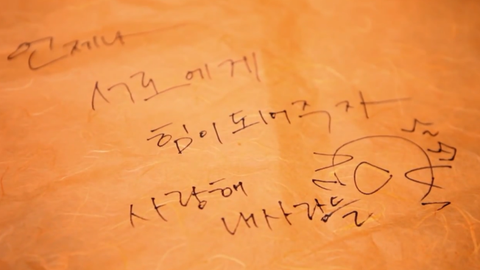 언제나
서로에게
힘이되어주자
사랑해
내사람들